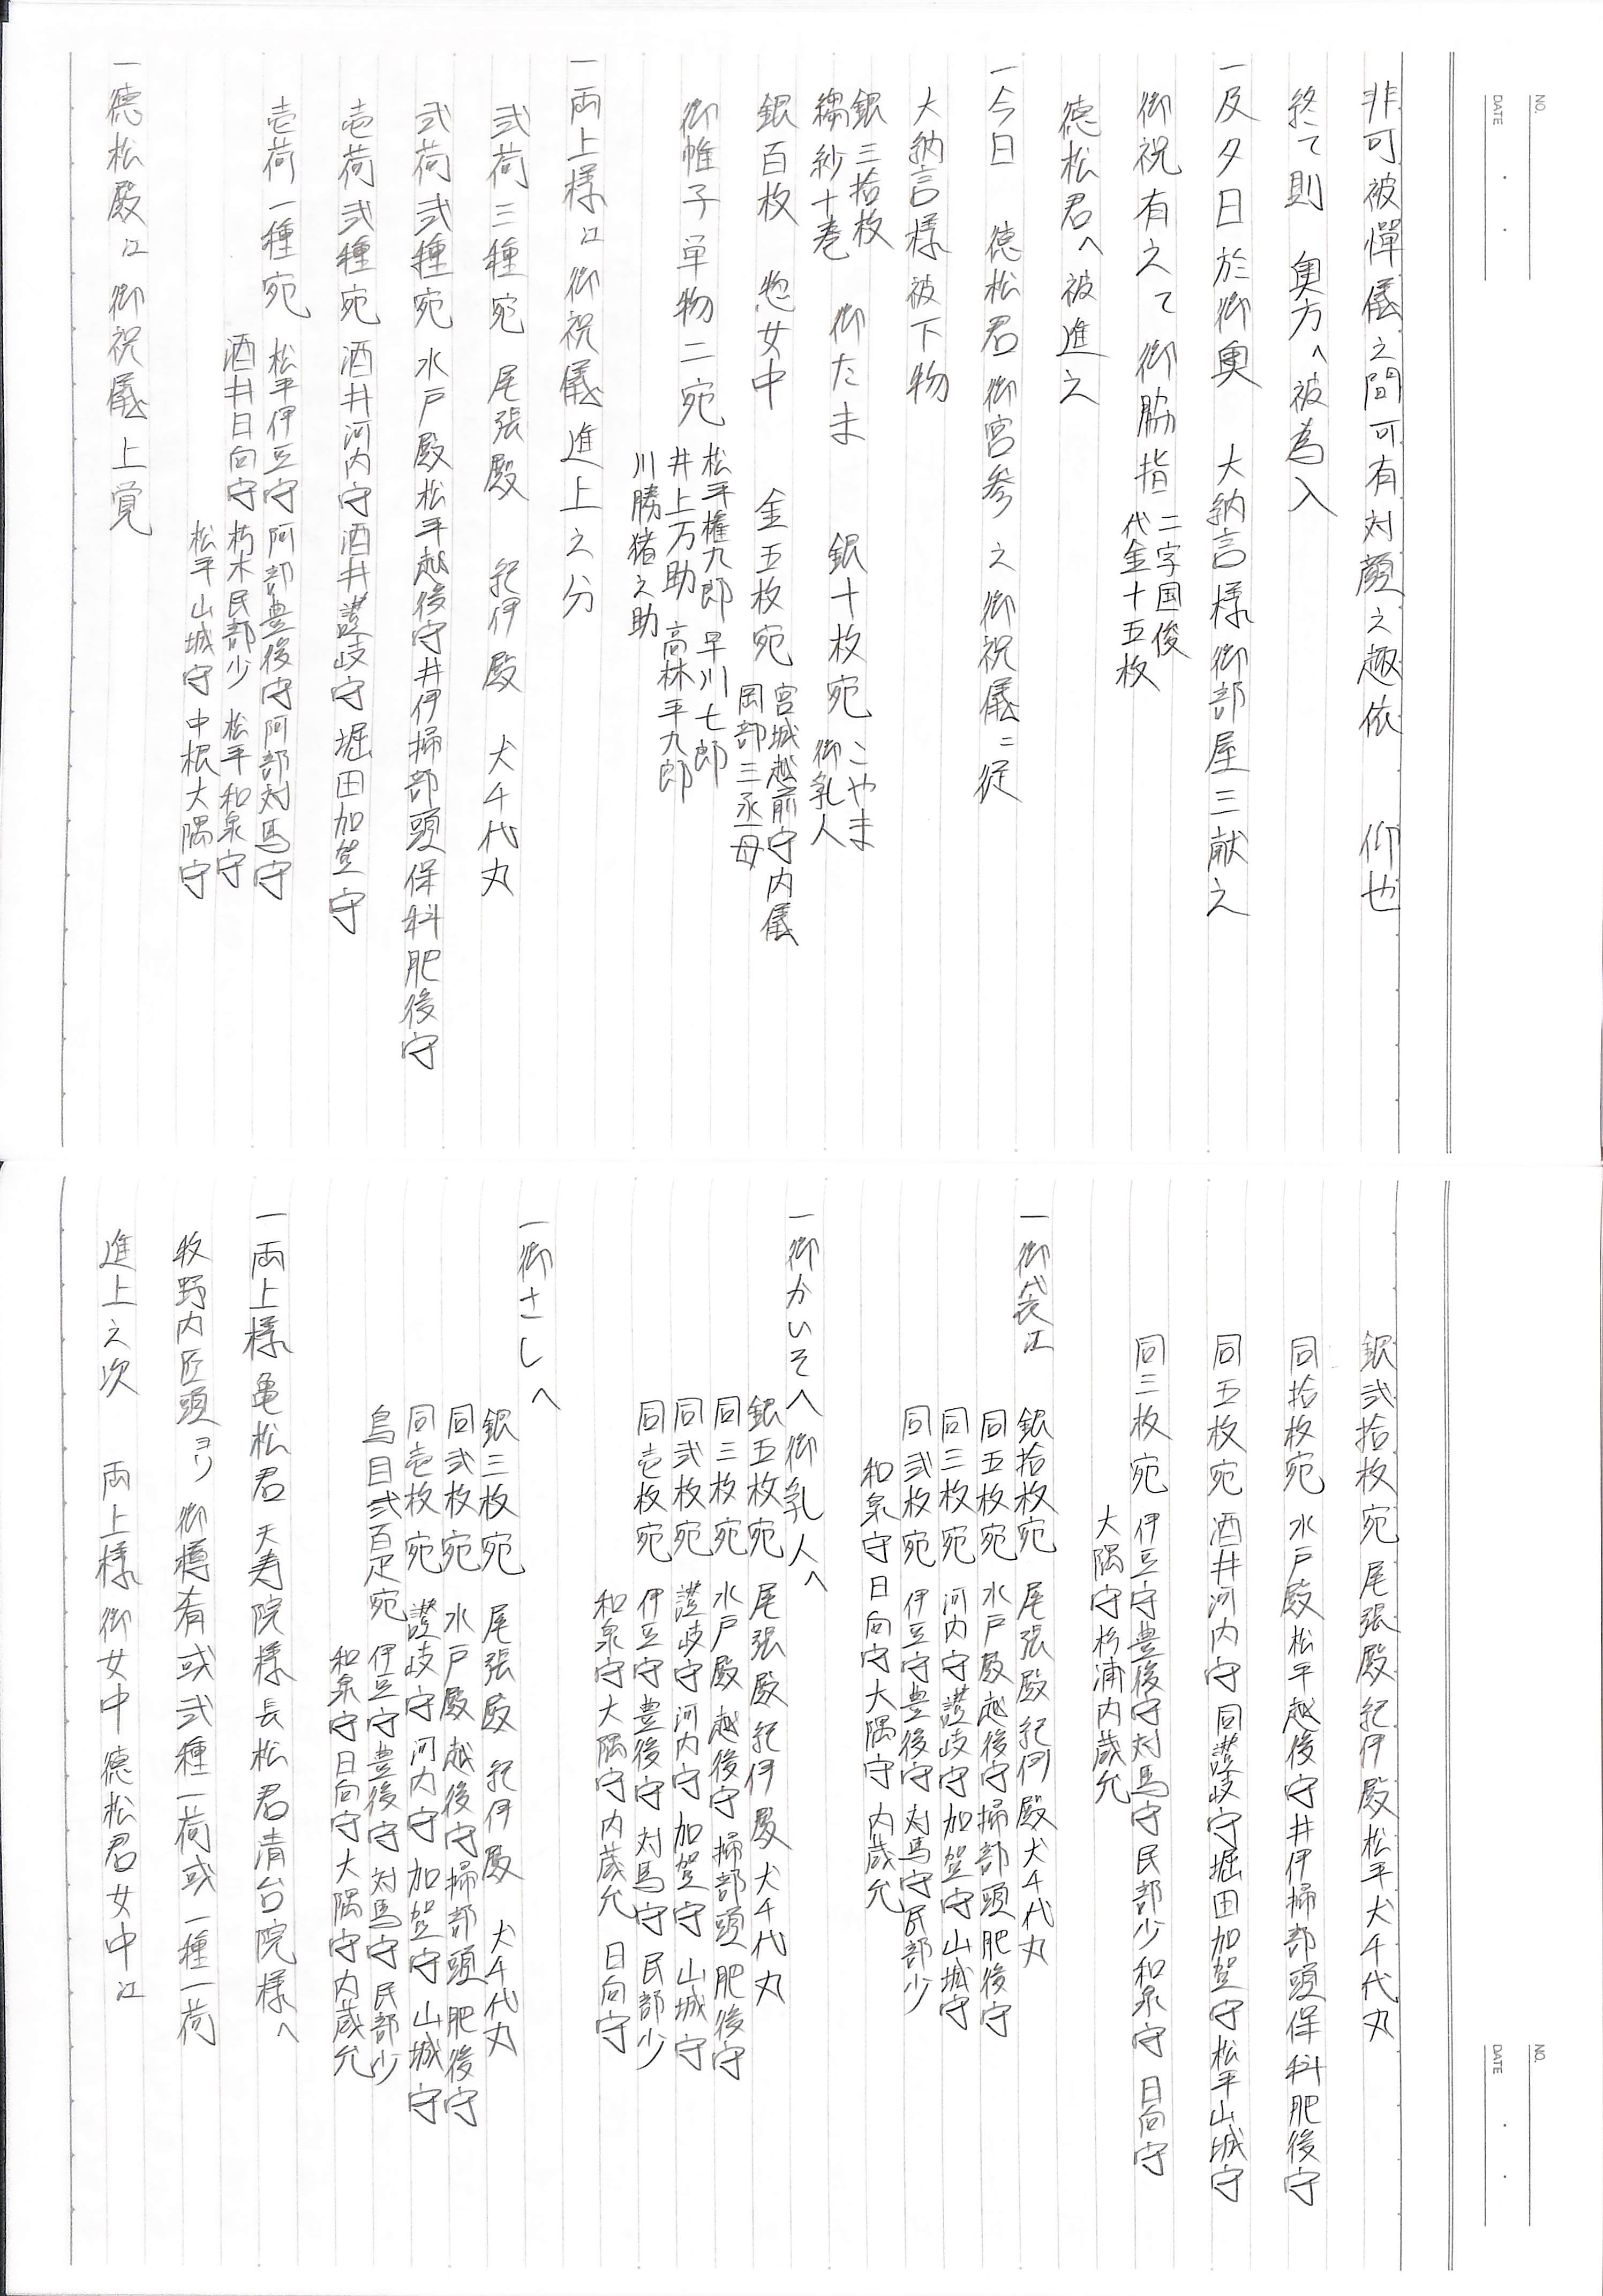 NO.
DATE
非可被憚儀之間可有対顔之趣依　仰也
終て則　奥方へ被為入
一及夕日於御奥　大納言様御部屋三献之
御祝有之て御脇指 二字国俊
代金十五枚
徳松君へ被進之
一今日　徳松君御宮参之御祝儀ニ従
大納言様被下物
銀三拾枚
縐紗十巻　御たま　銀十枚宛 こやま
御乳人
銀百枚　惣女中　金五枚宛 宮城越前守内儀
岡部三丞母
御帷子単物二宛 松平権九郎 早川七郎
井上万助 高林平九郎
川勝猪之助
一両上様江御祝儀進上之分
弐荷三種宛 尾張殿 紀伊殿 犬千代丸
弐荷弐種宛 水戸殿松平越後守井伊掃部頭保科肥後守
壱荷弐種宛 酒井河内守酒井讃岐守堀田加賀守
壱荷一種宛 松平伊豆守阿部豊後守阿部対馬守
酒井日向守 朽木民部少 松平和泉守
松平山城守 中根大隅守
一徳松殿江御祝儀上覚
銀弐拾枚宛 尾張殿紀伊殿松平犬千代丸
同拾枚宛 水戸殿松平越後守井伊掃部頭保科肥後守
同五枚宛 酒井河内守同讃岐守堀田加賀守松平山城守
同三枚宛 伊豆守豊後守対馬守民部少和泉守日向守
大隅守杉浦内蔵允
一御袋江
銀拾枚宛 尾張殿紀伊殿犬千代丸
同五枚宛 水戸殿越後守掃部頭肥後守
同三枚宛 河内守讃岐守加賀守山城守
同弐枚宛 伊豆守豊後守対馬守民部少
和泉守日向守大隅守内蔵允
一御かいそへ御乳人へ
銀五枚宛 尾張殿紀伊殿犬千代丸
同三枚宛 水戸殿越後守掃部頭肥後守
同弐枚宛 讃岐守河内守加賀守山城守
同壱枚宛 伊豆守豊後守対馬守民部少
和泉守大隅守内蔵允日向守
一御さしへ
銀三枚宛 尾張殿紀伊殿犬千代丸
同弐枚宛 水戸殿越後守掃部頭肥後守
同壱枚宛 讃岐守河内守加賀守山城守
鳥目弐百疋宛 伊豆守豊後守対馬守民部少
和泉守日向守大隅守内蔵允
一両上様亀松君天寿院様長松君清台院様へ
牧野内匠頭ヨリ御樽肴或弐種一荷或一種一荷
進上之次　両上様御女中徳松君女中江
NO.
DATE